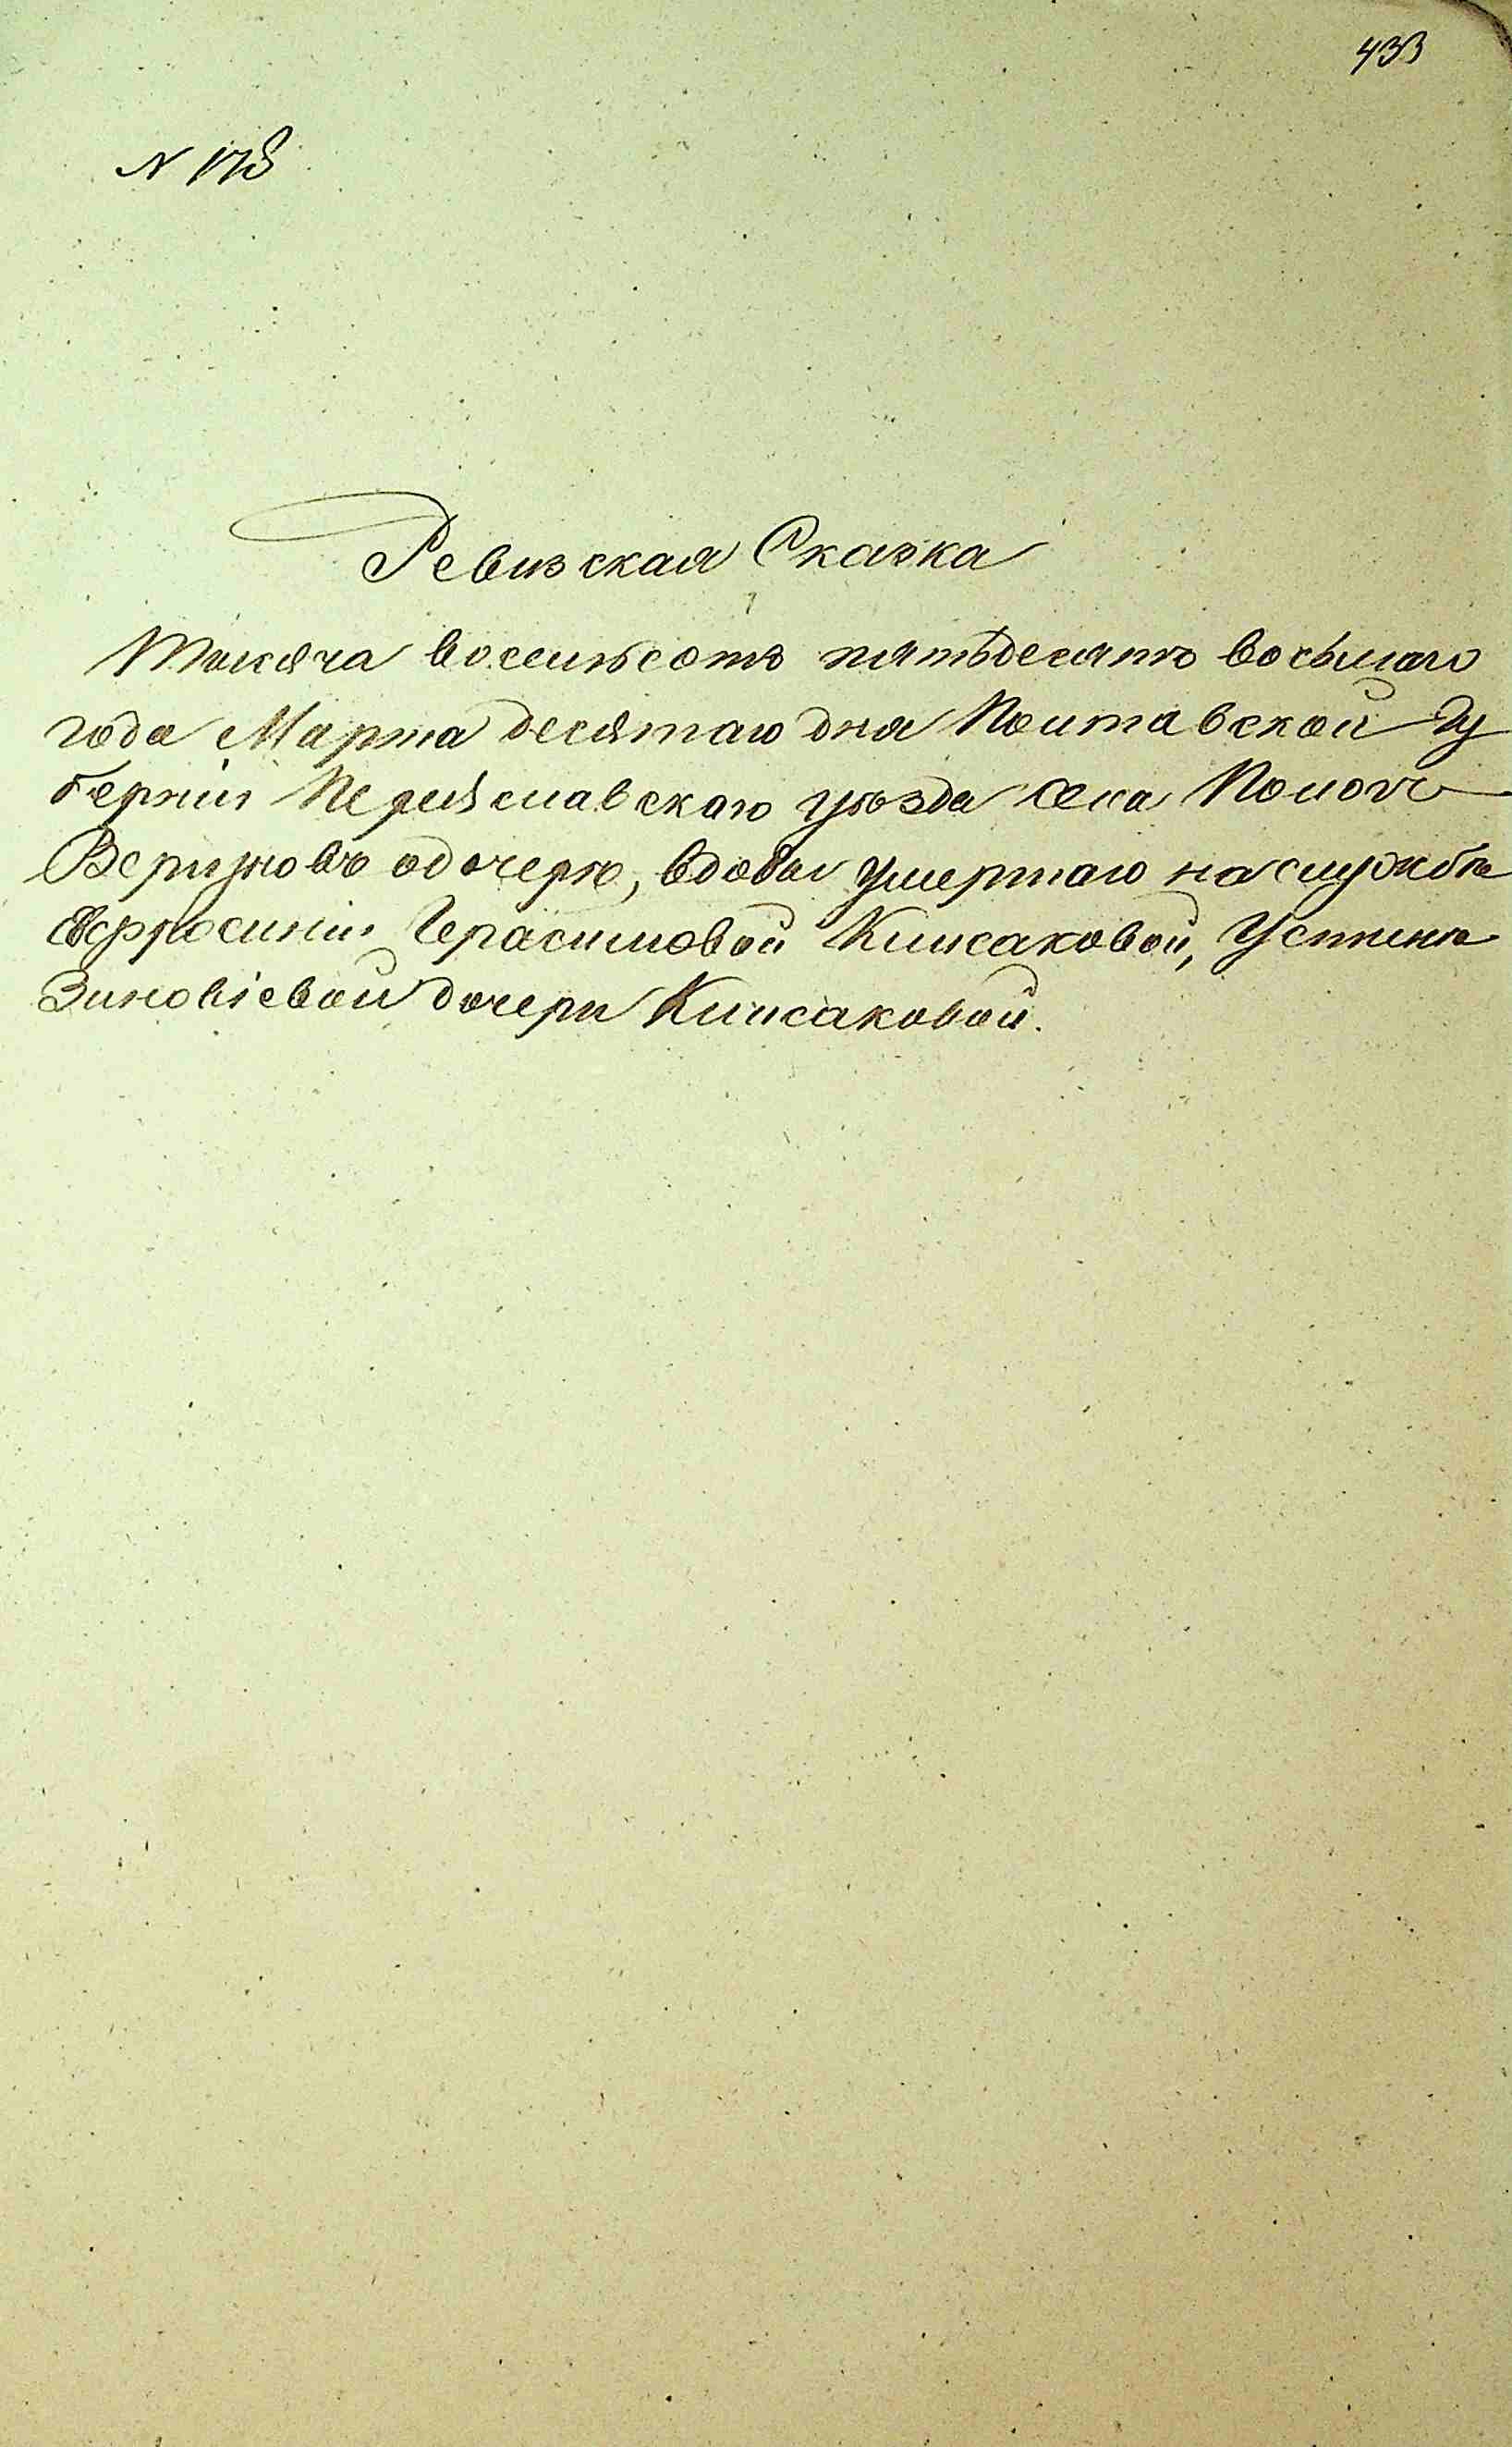 433
N 178
Ревизская Сказка
Тысяча восемьсотъ пятьдесятъ восьмаго
года Марта десятаго дня Полтавской Гу
берніи Переяславскаго уѣзда села Полого
Вергуновъ о дочерѣ, вдовы умершаго на службѣ
Евфросиніи Герасимовой Клисаковой, Устинѣ
Зиновіевой дочери Клисаковой.